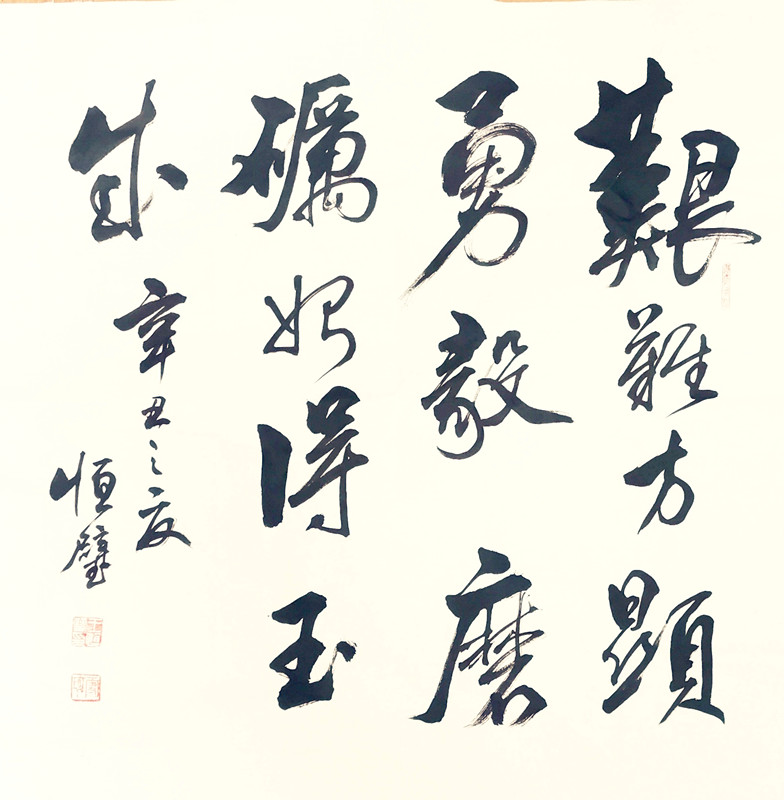 艱難方顯
勇毅磨
礪始得玉
成辛丑之夏
恒璧